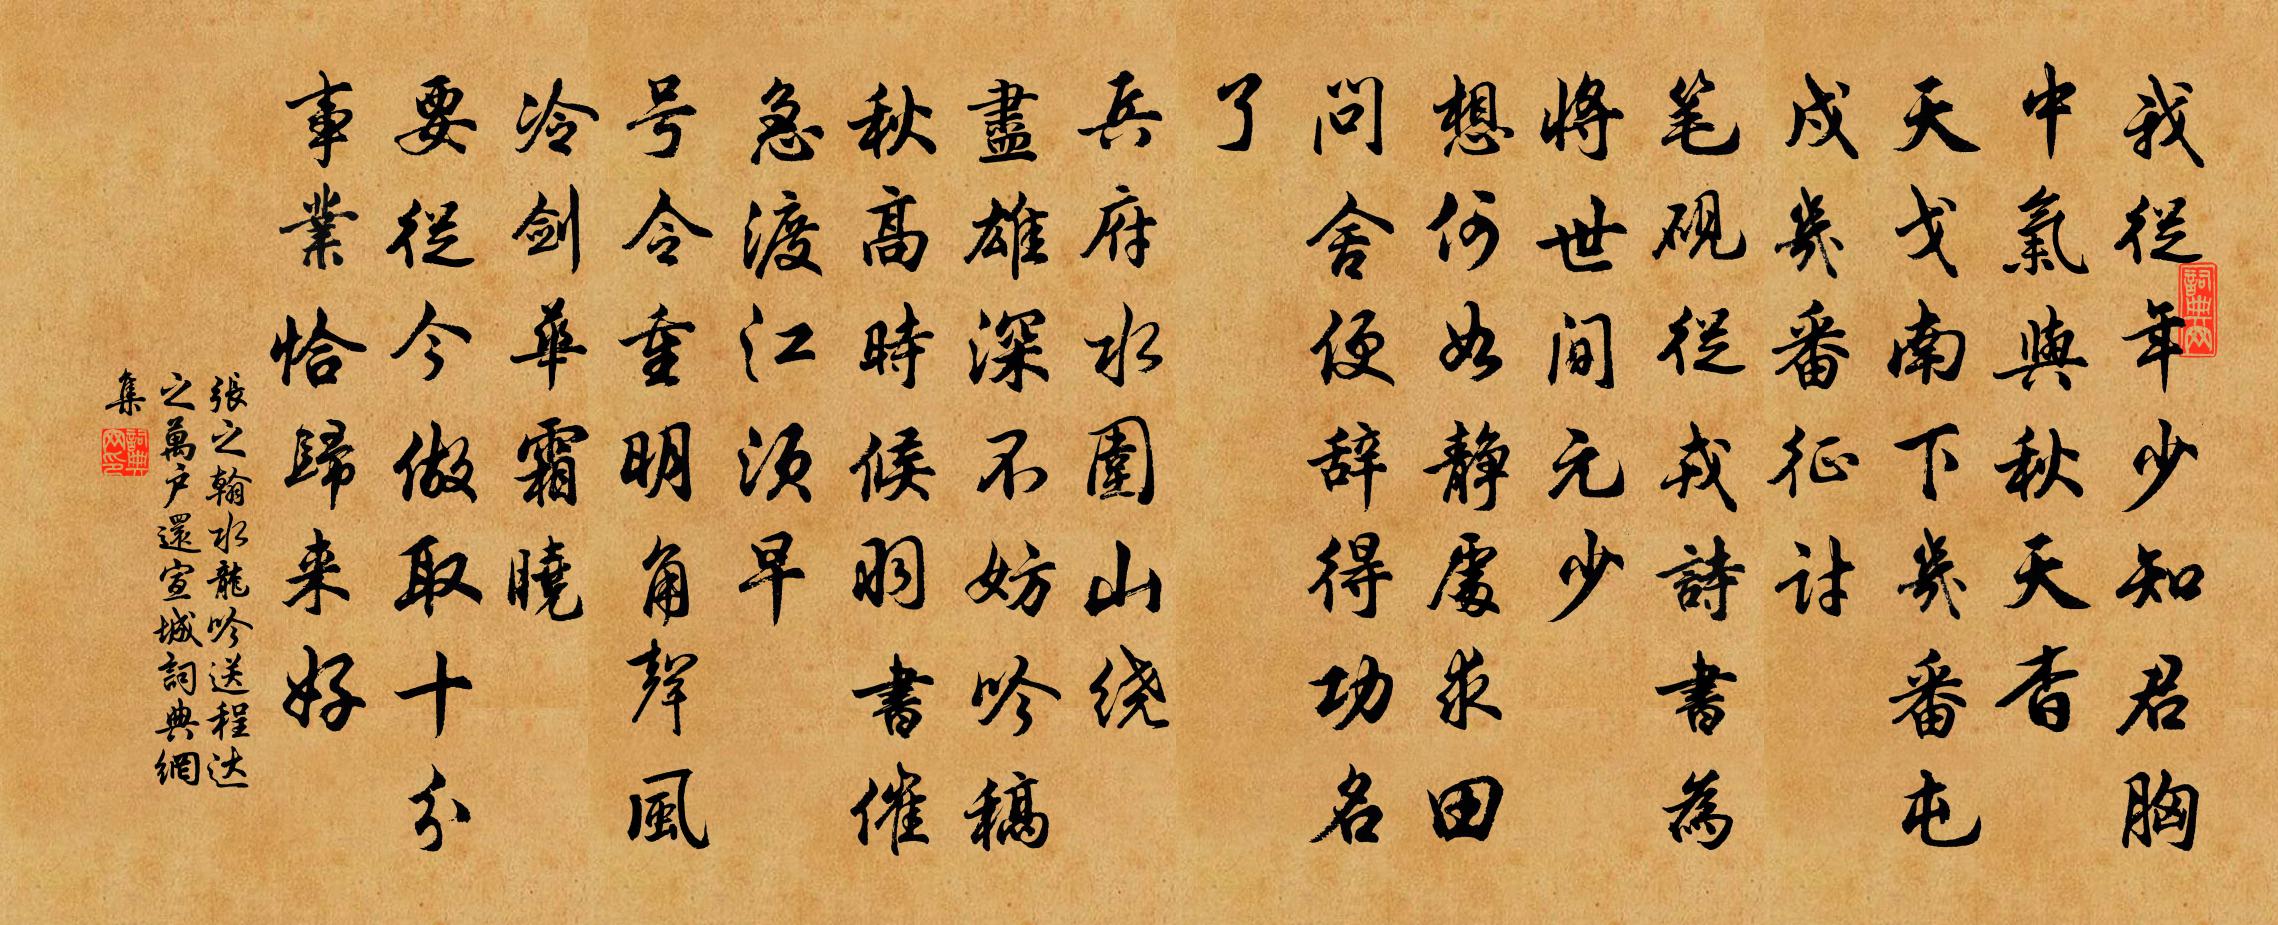 我從年少知君胸
中氣與秋天杳
天戈南下幾番屯
戍幾番征討
笔砚從戎詩書為
將世间元少
想何如静處求田
問舍便辞得功名
了
兵府水圍山绕
盡雄深不妨吟稿
秋高時候羽書催
急渡江须早
号令重明角聲風
冷剑華霜曉
要從今做取十分
事業恰歸来好
張之翰水龍吟送程达
之萬户還宣城詞典網
集
詞典网
詞典网印